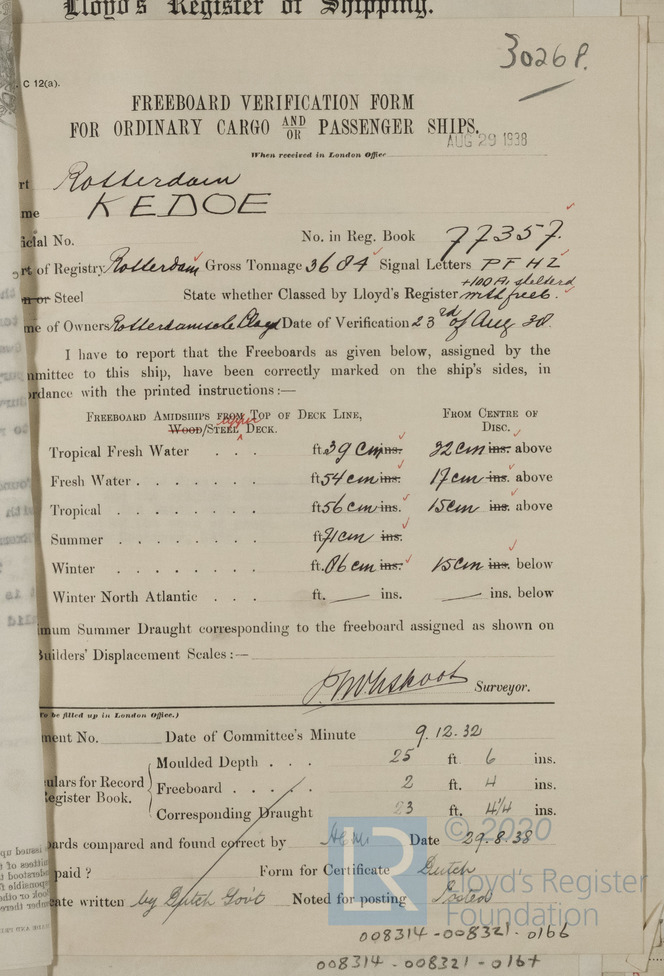 Lloyd's Register of Shipping.
3026 P.
C 12(a).
FREEBOARD VERIFICATION FORM
FOR ORDINARY CARGO AND OR PASSENGER SHIPS.
AUG 29 1938
When received in London Office
rt Rotterdam
me KEDOE
icial No. No. in Reg. Book 77357.
rt of Registry Rotterdam Gross Tonnage 3684 Signal Letters PFHZ
+100 A1
n or Steel State whether Classed by Lloyd's Register with freeb.
me of Owners Rotterdamsche Lloyd Date of Verification 23rd of Aug 38.
I have to report that the Freeboards as given below, assigned by the
mmittee to this ship, have been correctly marked on the ship's sides, in
rdance with the printed instructions :—
FREEBOARD AMIDSHIPS FROM TOP OF DECK LINE, FROM CENTRE OF
upper
WOOD/STEEL DECK. DISC.
Tropical Fresh Water . . . ft. 39 cm ins. 32 cm ins. above
Fresh Water . . . . . . . ft. 54 cm ins. 17 cm ins. above
Tropical . . . . . . . . ft. 56 cm ins. 15 cm ins. above
Summer . . . . . . . . ft. 71 cm ins.
Winter . . . . . . . . ft. 86 cm ins. 15 cm ins. below
Winter North Atlantic . . . ft. — ins. — ins. below
mum Summer Draught corresponding to the freeboard assigned as shown on
Builders' Displacement Scales :—
Surveyor.
To be filled up in London Office.)
ment No. Date of Committee's Minute 9.12.32
Moulded Depth . . . 25 ft. 6 ins.
ulars for Record Freeboard . . . . . 2 ft. 4 ins.
Register Book.
Corresponding Draught 23 ft. 4¼ ins.
ards compared and found correct by Date 29.8.38
paid ? Form for Certificate Dutch
ate written by Dutch Gov't Noted for posting Posted
LR © 2020
Lloyd's Register
Foundation
008314-008321-0166
008314-008321-0167